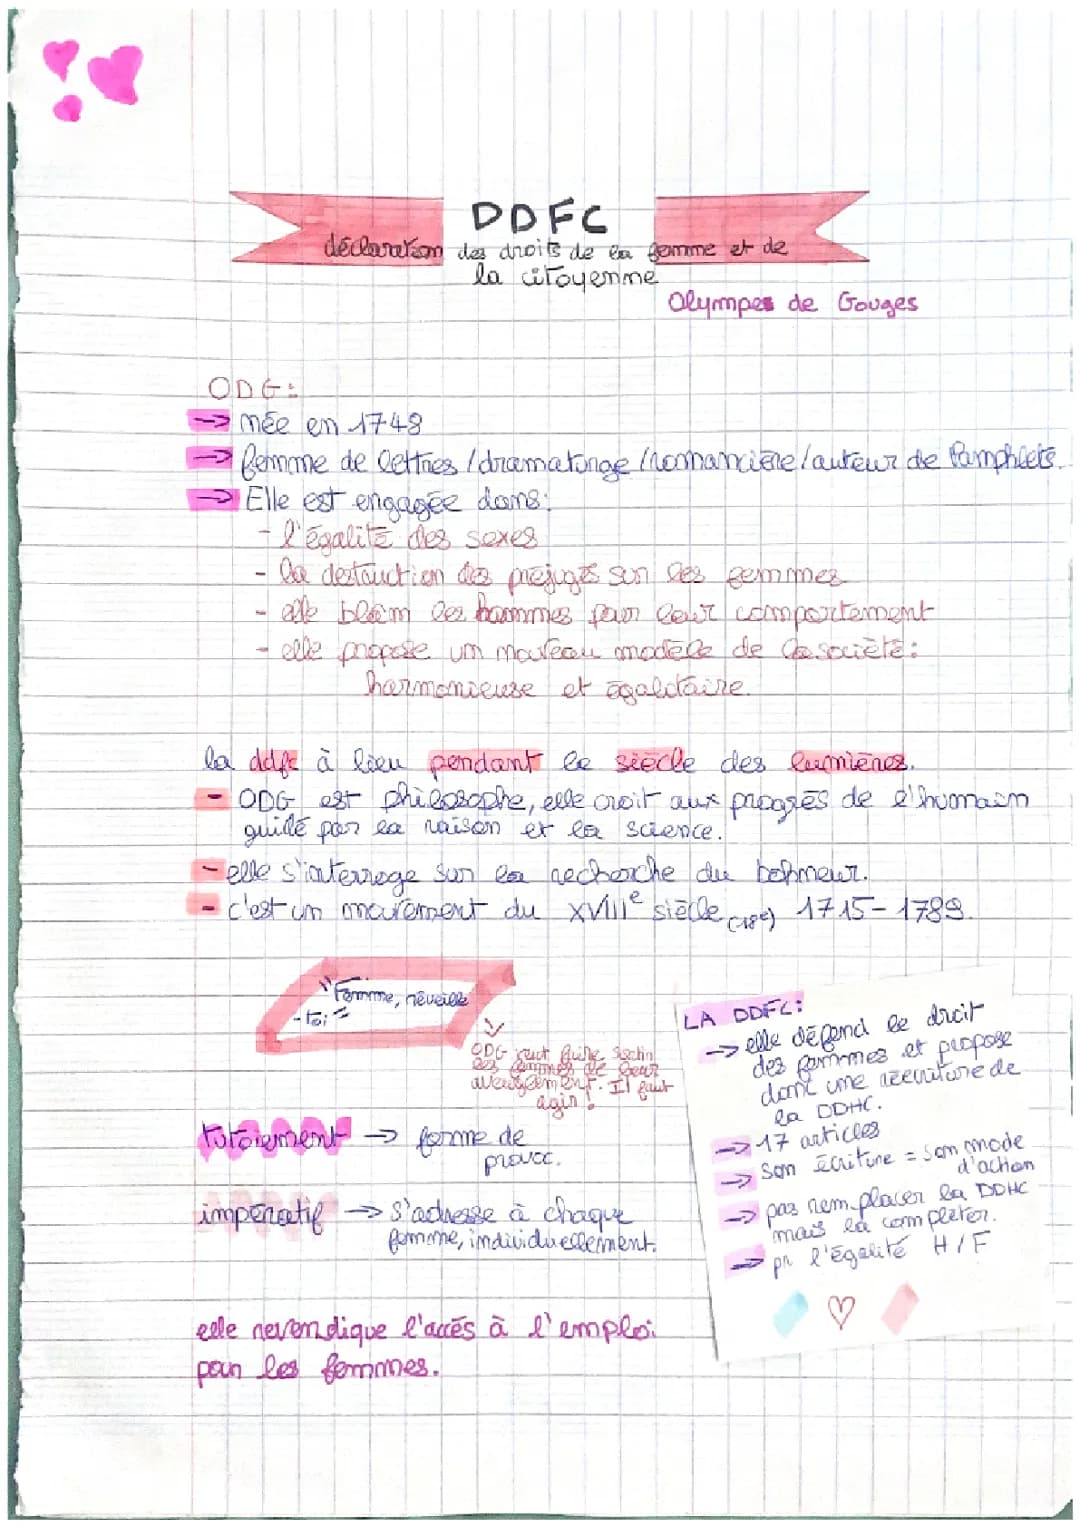 DDFC
déclaration des droits de la femme et de
la citoyenne
Olympes de Gouges
ODG:
→ née en 1748
→ femme de lettres / dramaturge / romancière / auteur de Pamphlets.
→ Elle est engagée dans:
- l'égalité des sexes
- la destruction des préjugés sur les femmes
- elle blâm les hommes pour leur comportement
- elle propose un nouveau modèle de la société:
harmonieuse et égalitaire.
la ddfc à lieu pendant le siècle des lumières.
- ODG est philosophe, elle croit aux progrès de l'humain
guidé par la raison et la science.
- elle s'interroge sur la recherche du bohneur.
- c'est un mouvement du XVIIIe siècle (18e) 1715-1789.
"Femme, réveille
-toi"
ODG veut faire sortir
les femmes de leur
aveuglement. Il faut
agir!
tutoiement → forme de
provoc.
impératif → s'adresse à chaque
femme, individuellement.
elle revendique l'accès à l'emploi
pour les femmes.
LA DDFC:
→ elle défend le droit
des femmes et propose
dont une réecriture de
la DDHC.
→ 17 articles
→ son écriture = son mode
d'action
→ pas remplacer la DDHC
mais la compléter.
→ pr l'égalité H/F